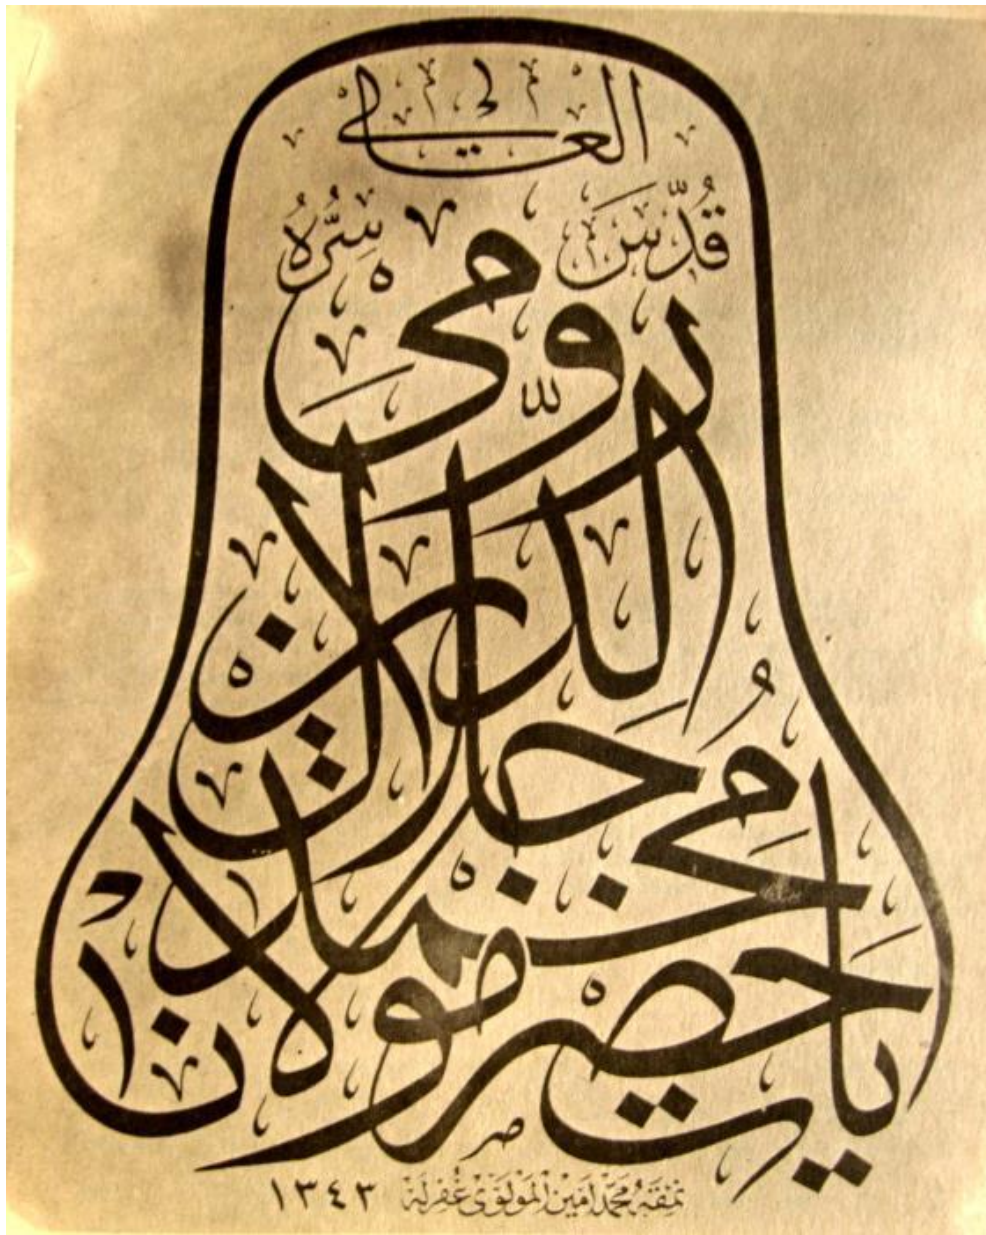 يا حضرت مولانا
محمد جلال الدين
رومى
قُدِّسَ سِرُّهُ
العالى
نمقه محمد امين المولوى غفرله ١٣٤٣